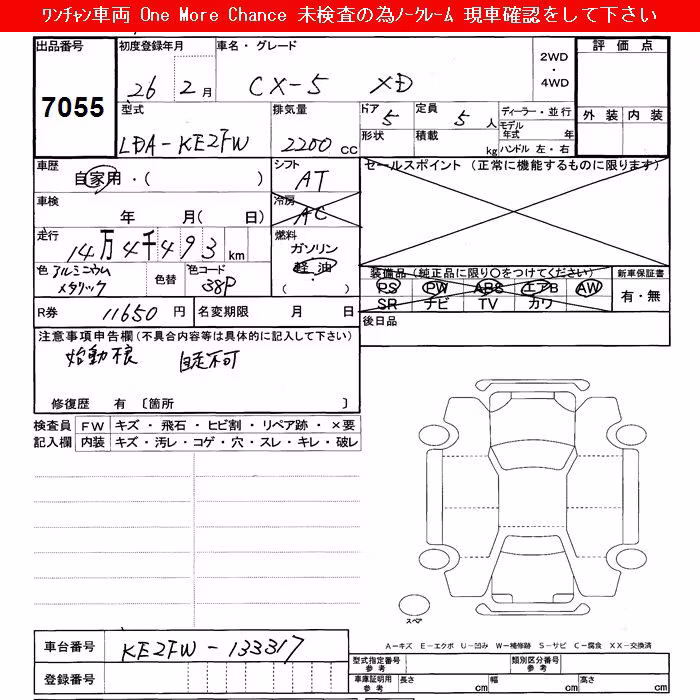 ﾜﾝﾁｬﾝ車両 One More Chance 未検査の為ﾉｰｸﾚｰﾑ 現車確認をして下さい
出品番号 初度登録年月 車名・グレード 2WD ・ 4WD 評価点
7055 26 2月 CX-5 XD
型式 排気量 ドア 5 定員 5人 ディーラー・並行 外装 内装
LDA-KE2FW 2200cc 形状 積載 kg モデル年式 年
ハンドル 左・右
車歴 自家用・( ) シフト AT セールスポイント (正常に機能するものに限ります)
車検 年 月( 日) 冷房 AC
走行 14万4千493km 燃料 ガソリン
軽油
( )
色 アルミニウムメタリック 色替 色コード 38P
装備品(純正品に限り○をつけてください) 新車保証書
PS PW ABS エアB AW 有・無
SR ナビ TV カワ
R券 11650円 名変期限 月 日 後日品
注意事項申告欄(不具合内容等は具体的に記入して下さい)
始動不良 自走不可
修復歴 有 〔箇所 〕
検査員 FW キズ・飛石・ヒビ割・リペア跡・×要
記入欄 内装 キズ・汚レ・コゲ・穴・スレ・キレ・破レ
スペア
A－キズ E－エクボ U－凹み W－補修跡 S－サビ C－腐食 XX－交換済
車台番号 KE2FW-133317
登録番号
型式指定番号 参考 類別区分番号 参考
車庫証明用 参考 長さ cm 幅 cm 高さ cm